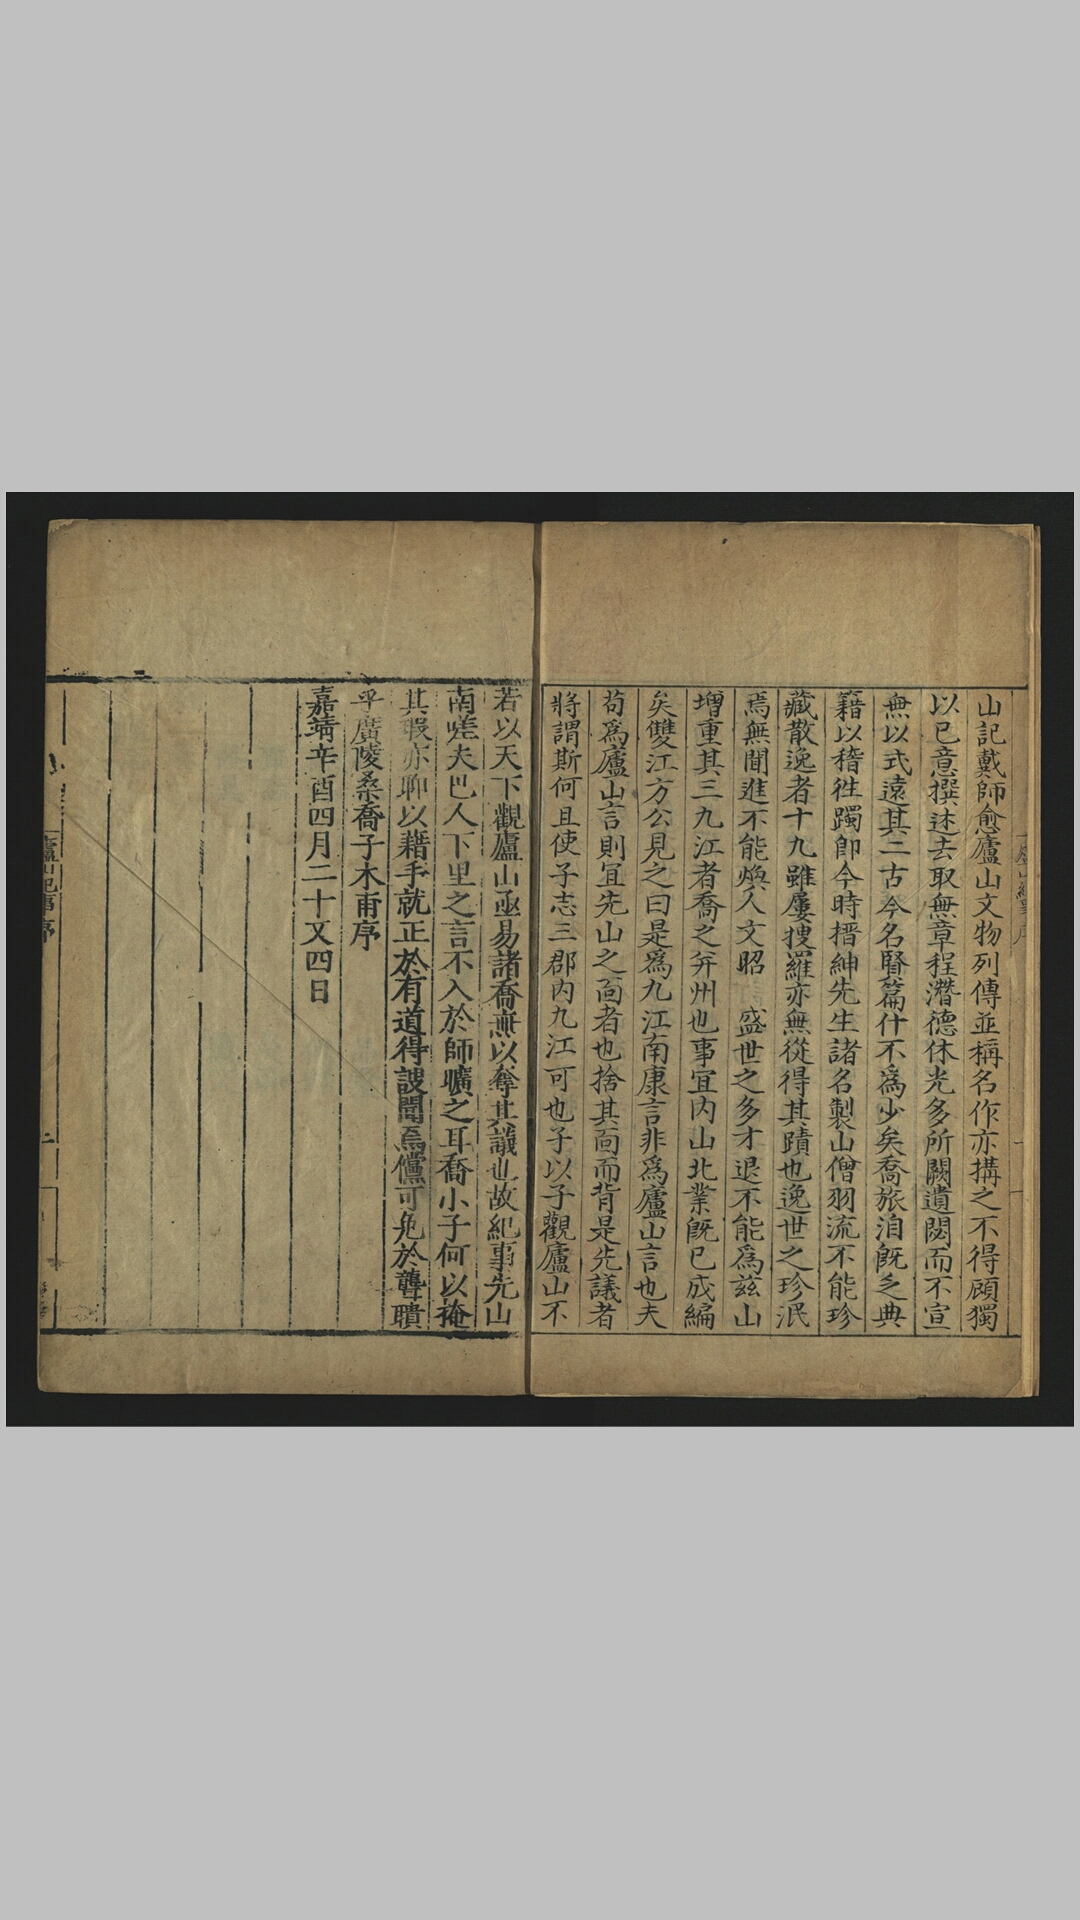 山記戴師愈廬山文物列傳並稱名作亦搆之不得顧獨
以已意撰述去取無章程濳德休光多所闕遺閎而不宣
無以式遠其二古今名賢篇什不爲少矣喬旅泊旣乏典
籍以稽徃躅卽今時搢紳先生諸名製山僧羽流不能珍
藏散逸者十九雖屢搜羅亦無從得其蹟也逸世之珍泯
焉無聞進不能煥人文昭 盛世之多才退不能爲兹山
增重其三九江者喬之并州也事宜内山北業旣已成編
矣雙江方公見之曰是爲九江南康言非爲廬山言也夫
苟爲廬山言則宜先山之面者也捨其面而背是先議者
將謂斯何且使子志三郡内九江可也子以子觀廬山不
若以天下觀廬山亟易諸喬無以奪其議也故紀事先山
南嗟夫巴人下里之言不入於師曠之耳喬小子何以掩
其瑕亦聊以藉手就正於有道得謏聞焉儻可免於聾聵
乎廣陵桑喬子木甫序
嘉靖辛酉四月二十又四日
廬山紀事序